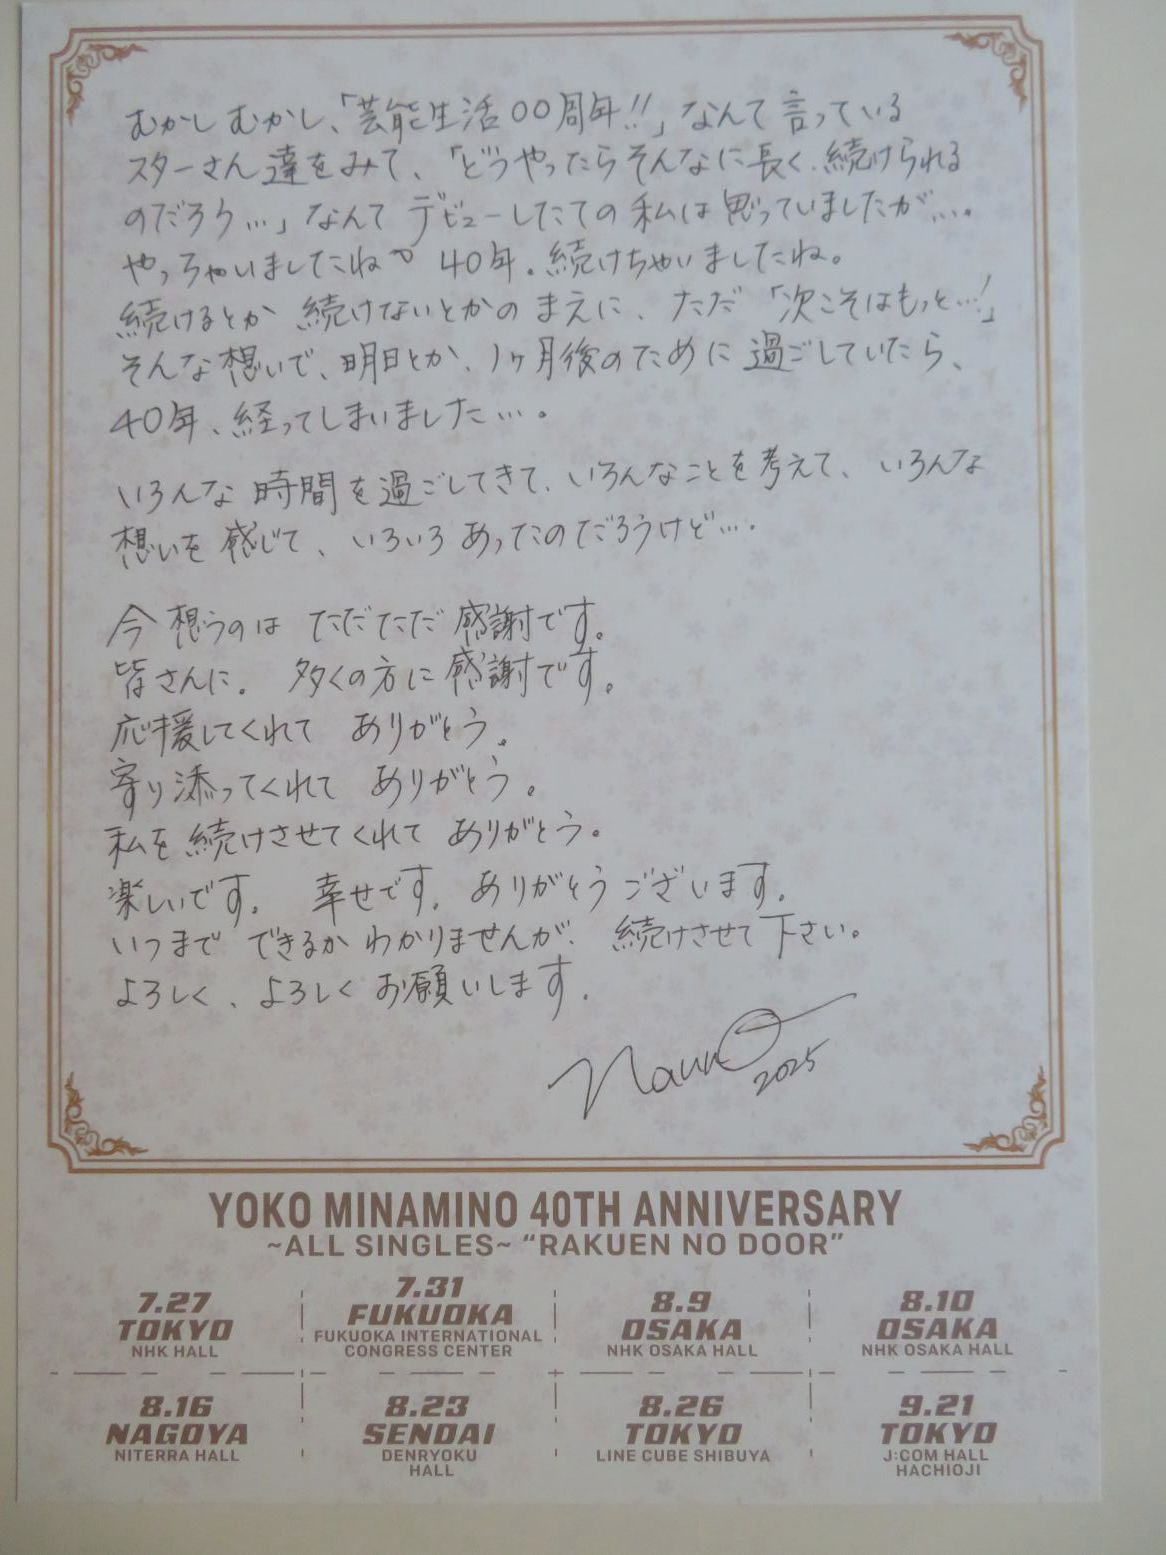 むかしむかし、「芸能生活〇〇周年!!」なんて言っている
スターさん達をみて、「どうやったらそんなに長く、続けられる
のだろう…」なんて デビューしたての 私は 思っていましたが…。
やっちゃいましたね 40年。続けちゃいましたね。
続けるとか 続けないとかの まえに、ただ「次こそはもっと…!」
そんな想いで、明日とか、1ヶ月後のために 過ごしていたら、
40年、経ってしまいました…。
いろんな 時間を過ごしてきて、いろんなことを考えて、いろんな
想いを 感じて、いろいろ あったのだろうけど…。
今 想うのは ただただ 感謝です。
皆さんに。 多くの方に感謝です。
応援してくれて ありがとう。
寄り添ってくれて ありがとう。
私を 続けさせてくれて ありがとう。
楽しいです。 幸せです。 ありがとうございます。
いつまで できるか わかりませんが、 続けさせて下さい。
よろしく、よろしく お願いします。
2025
YOKO MINAMINO 40TH ANNIVERSARY
~ALL SINGLES~ “RAKUEN NO DOOR”
7.27
TOKYO
NHK HALL
7.31
FUKUOKA
FUKUOKA INTERNATIONAL
CONGRESS CENTER
8.9
OSAKA
NHK OSAKA HALL
8.10
OSAKA
NHK OSAKA HALL
8.16
NAGOYA
NITERRA HALL
8.23
SENDAI
DENRYOKU
HALL
8.26
TOKYO
LINE CUBE SHIBUYA
9.21
TOKYO
J:COM HALL
HACHIOJI